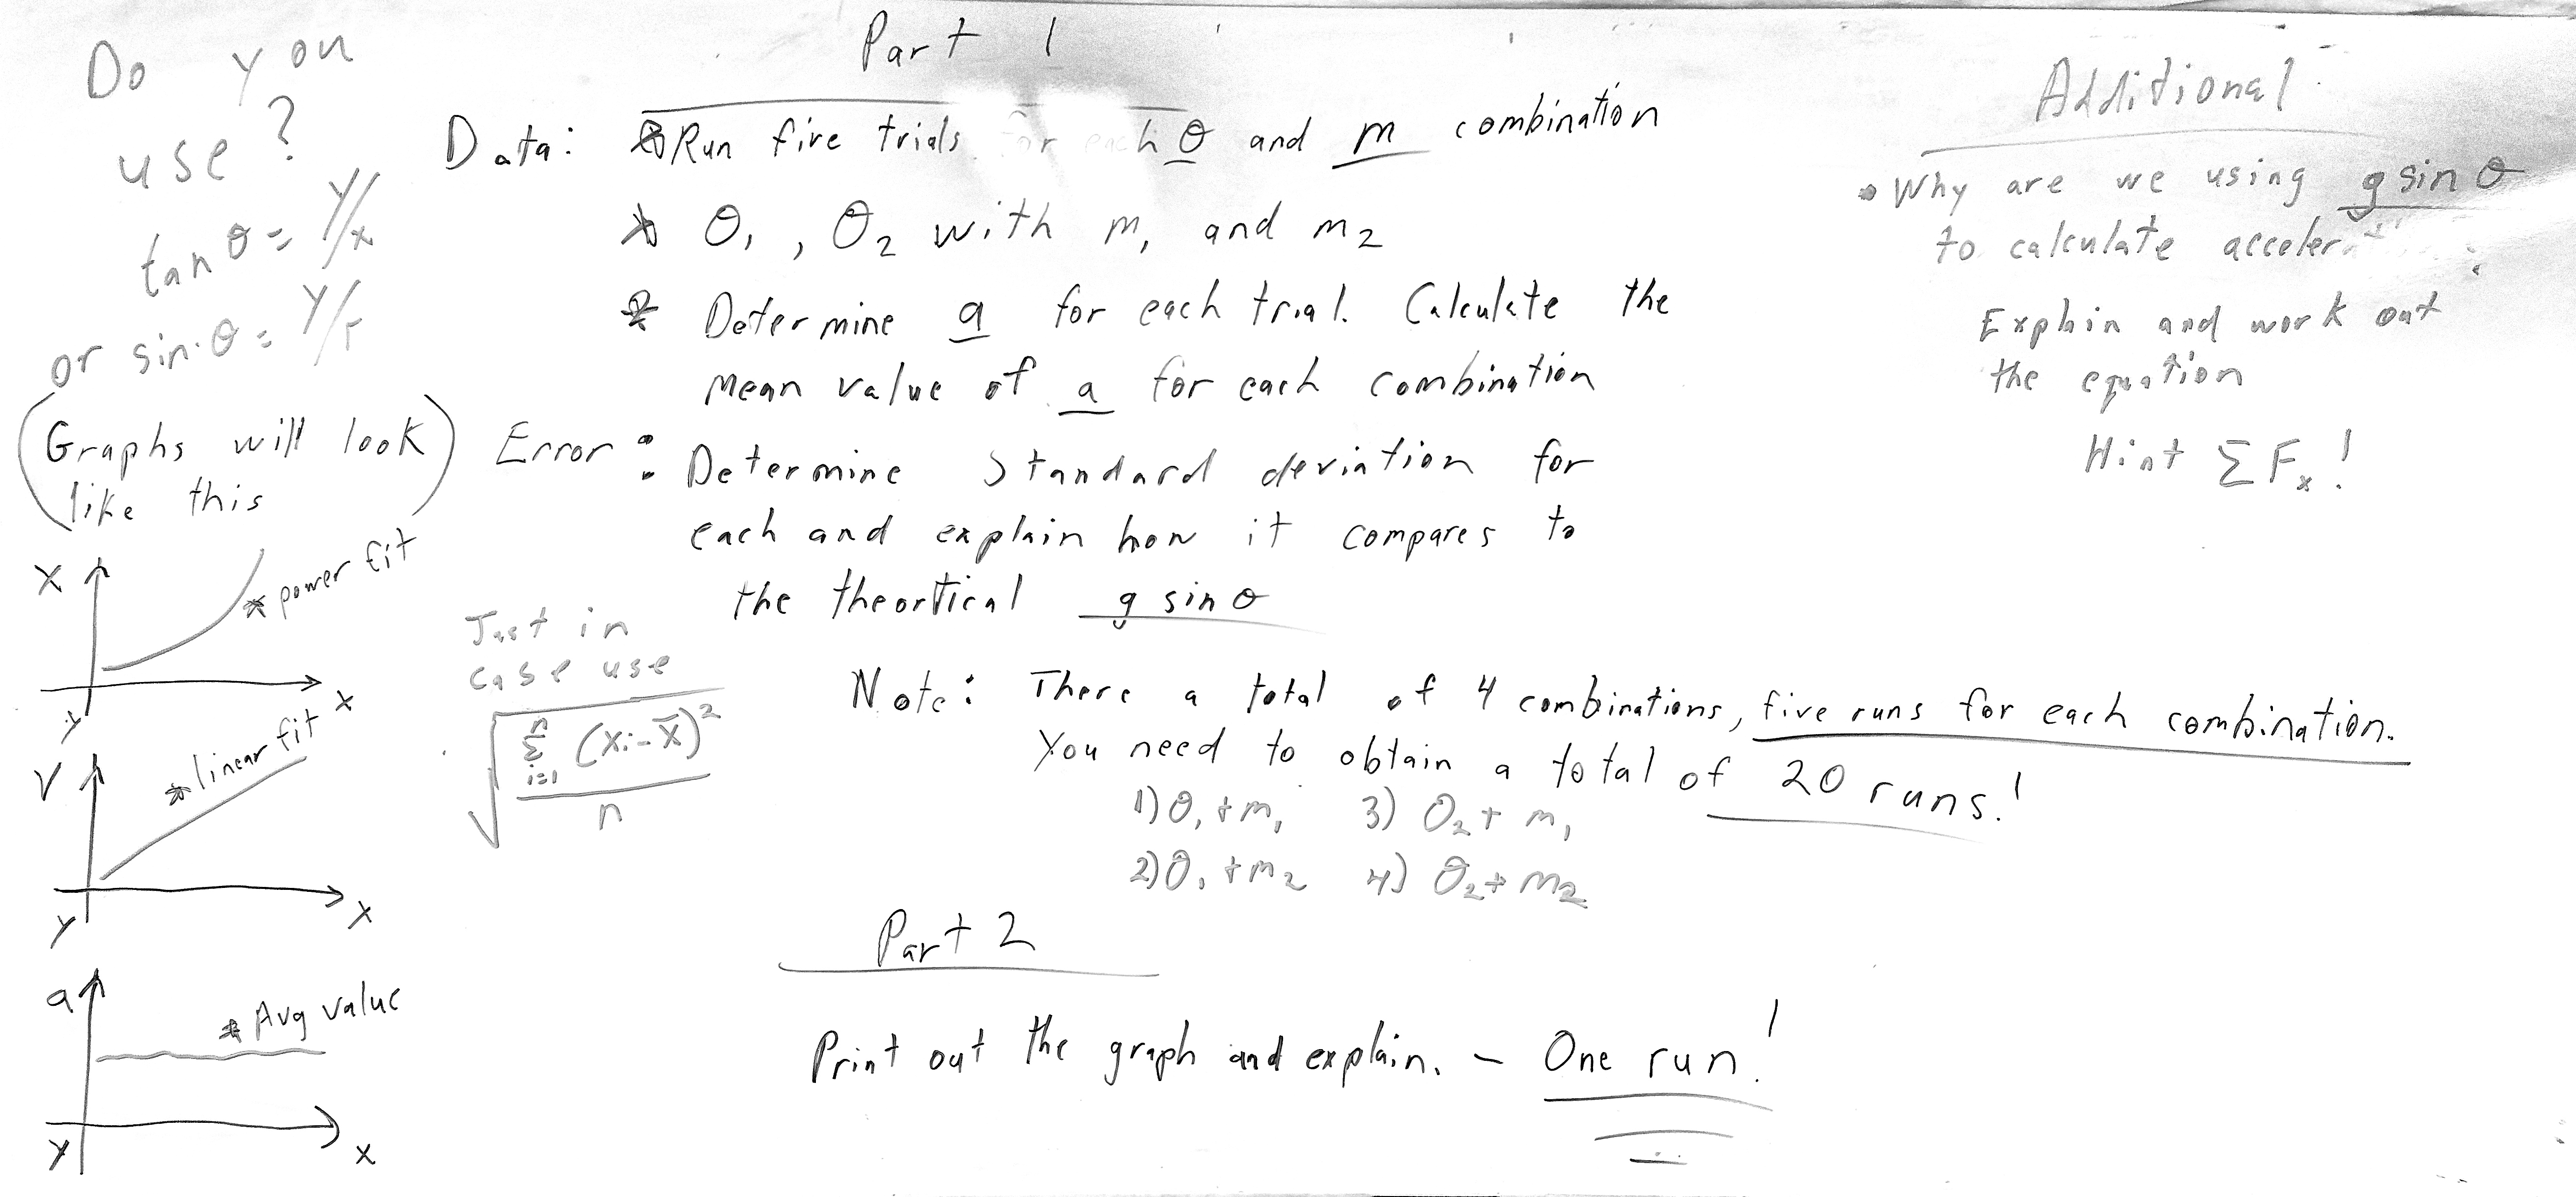 Do you
use?
tan θ = y/x
or sin θ = y/r
(Graphs will look
like this)
X
* power fit
x
y
V
* linear fit
x
y
a
* Avg value
x
y
Part 1
Data: * Run five trials for each θ and m combination
* θ₁, θ₂ with m₁ and m₂
* Determine a for each trial. Calculate the
mean value of a for each combination
Error: Determine Standard deviation for
each and explain how it compares to
the theortical g sin θ
Just in
case use
√(Σⁿᵢ₌₁ (xᵢ - x̄)² / n)
Note: There a total of 4 combinations, five runs for each combination.
You need to obtain a total of 20 runs!
1) θ₁ + m₁ 3) θ₂ + m₁
2) θ₁ + m₂ 4) θ₂ + m₂
Part 2
Print out the graph and explain. – One run!
Additional
• Why are we using g sin θ
to calculate acceler
Explain and work out
the equation
Hint Σ Fₓ!